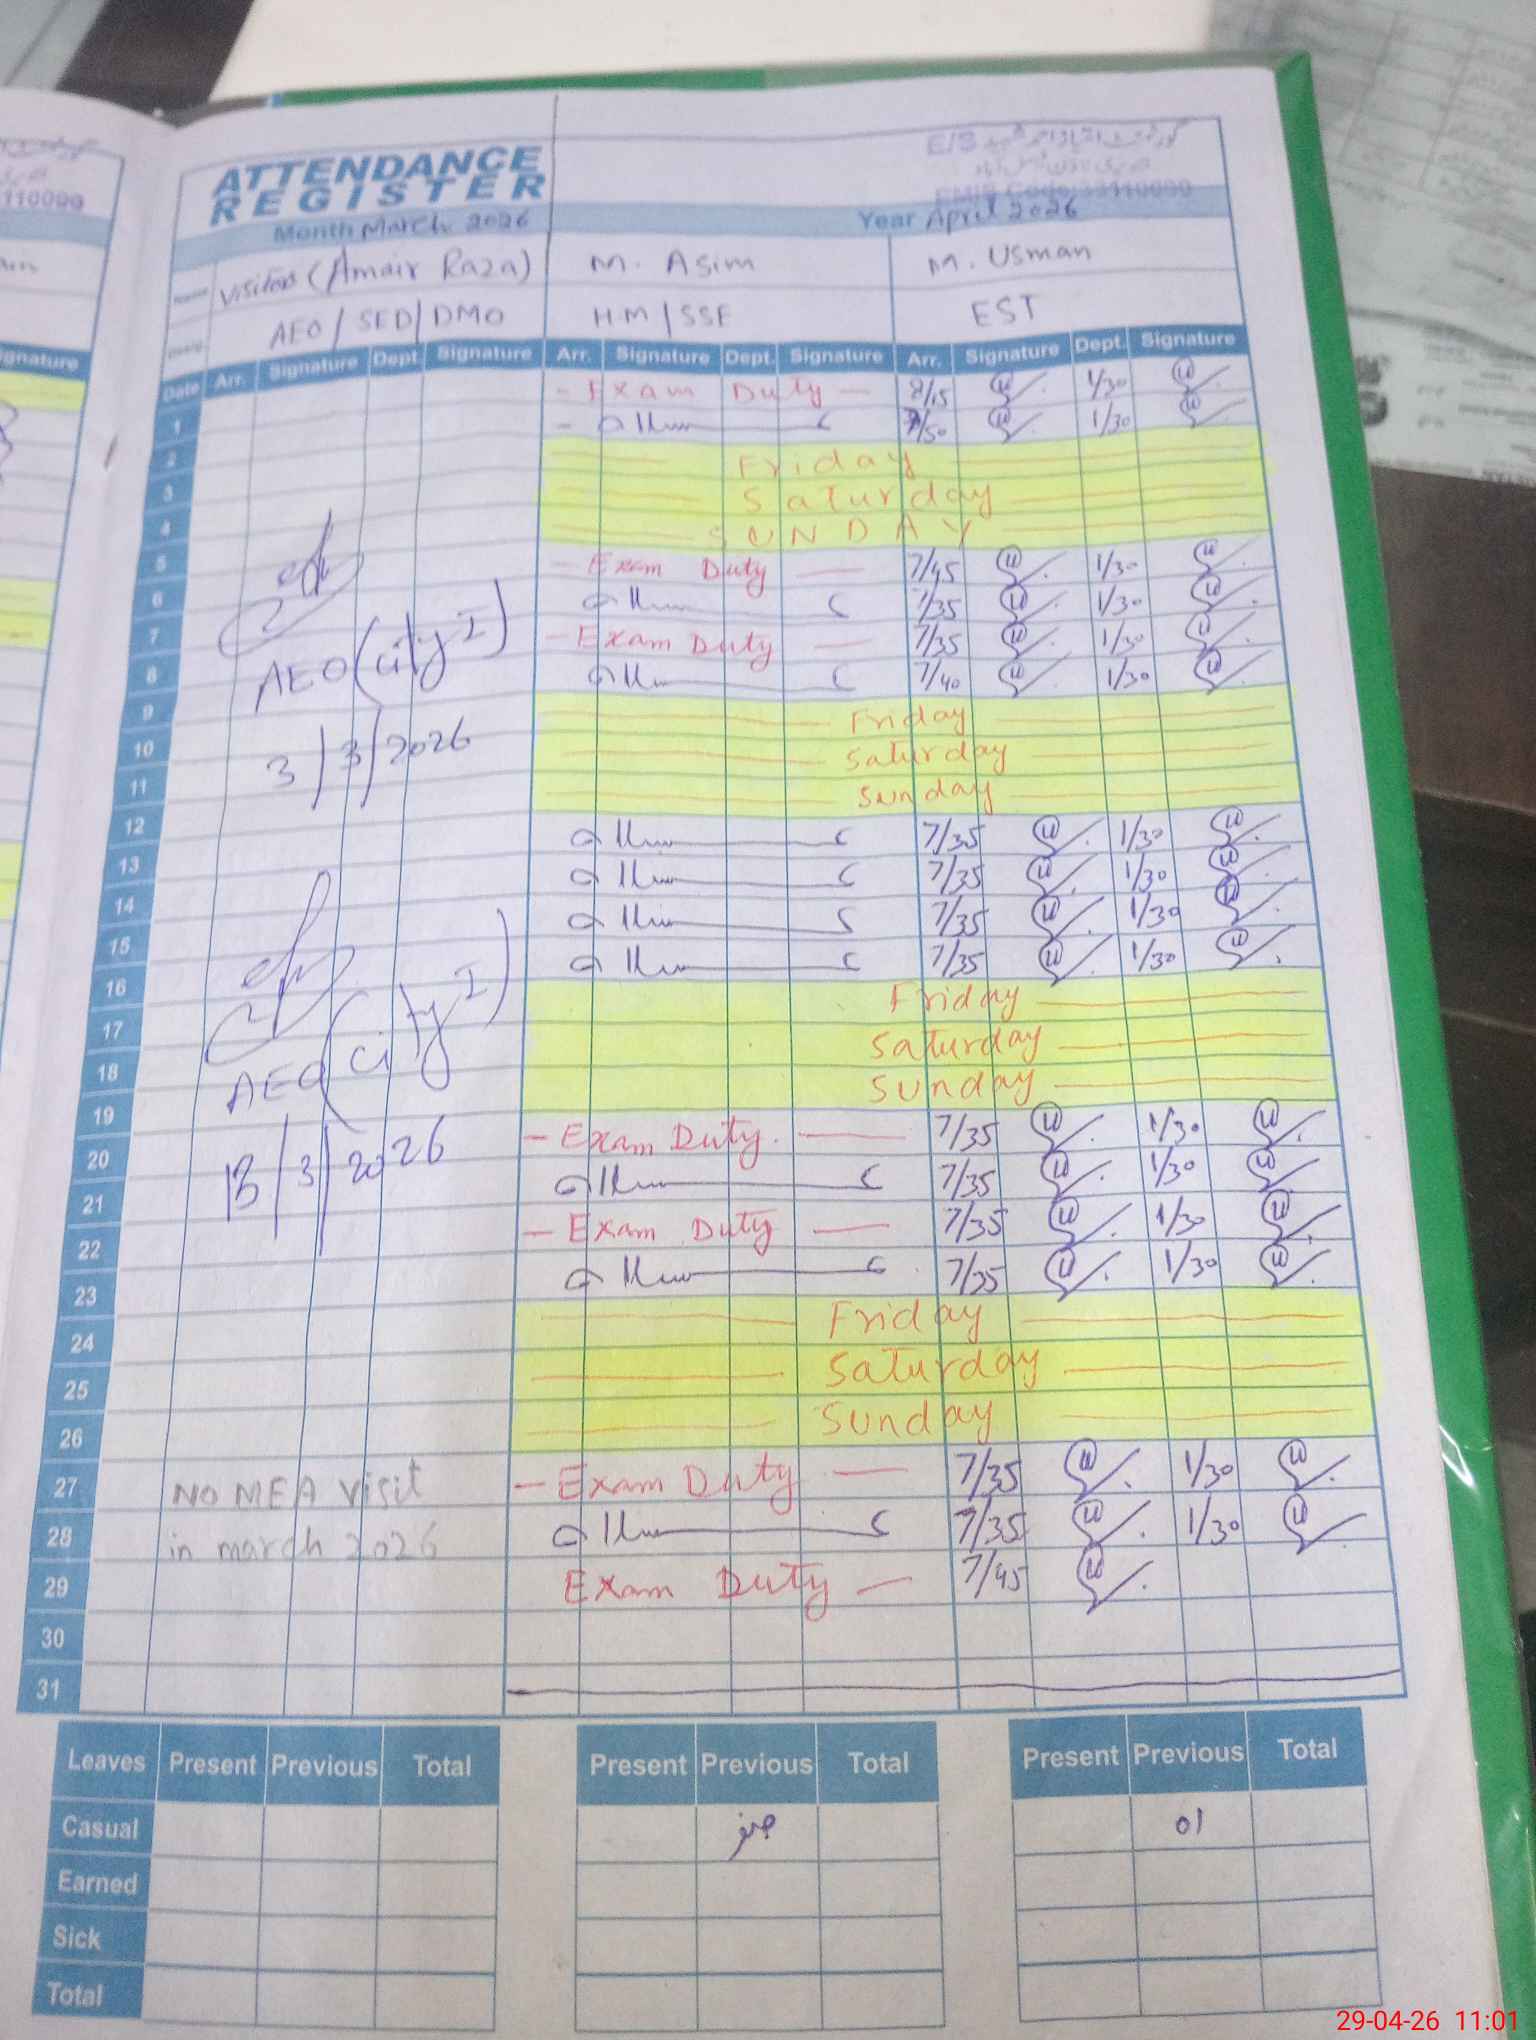 ATTENDANCE
REGISTER
E/S
EMIS Code:33110090
110090
Month March 2026
Year April 2026
Name Visitors (Amair Raza) M. Asim M. Usman
Desig. AEO / SED / DMO HM / SSE EST
Signature
Date Arr. Signature Dept. Signature Arr. Signature Dept. Signature Arr. Signature Dept. Signature
1 - Exam Duty — 8/15 1/30
2 7/50 1/30
3 Friday
4 Saturday
5 SUNDAY
6 - Exam Duty — 7/45 1/30
7 7/35 1/30
8 - Exam Duty — 7/35 1/30
9 7/40 1/30
AEO (City I)
3/3/2026
10 Friday
11 Saturday
12 Sunday
13 7/35 1/30
14 7/35 1/30
15 7/35 1/30
16 7/35 1/30
17 Friday
18 Saturday
19 Sunday
AEO (City I)
13/3/2026
20 - Exam Duty. — 7/35 1/30
21 7/35 1/30
22 - Exam Duty — 7/35 1/30
23 7/35 1/30
24 Friday
25 Saturday
26 Sunday
27 NO MEA visit - Exam Duty — 7/35 1/30
28 in march 2026 7/35 1/30
29 Exam Duty — 7/45
30
31
Leaves Present Previous Total Present Previous Total Present Previous Total
Casual صفر 01
Earned
Sick
Total
29-04-26 11:01